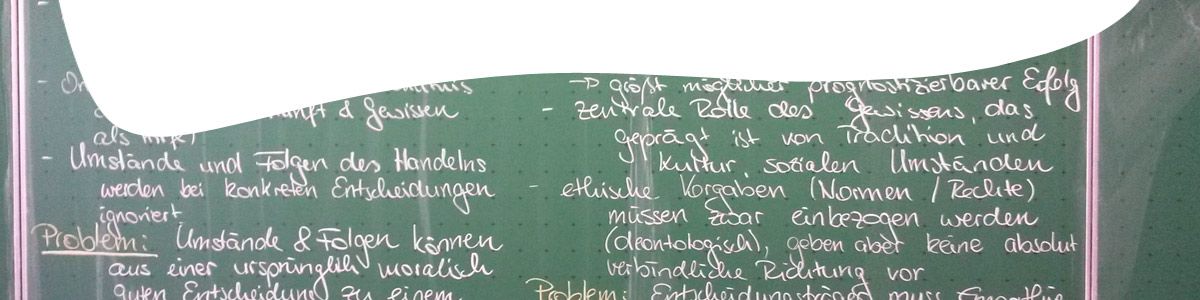 - 
& Gewissen
als
- Umstände und Folgen des Handelns
werden bei konkreten Entscheidungen
ignoriert
Problem: Umstände & Folgen können
aus einer ursprünglich moralisch
guten Entscheidung zu einem
-> größt möglicher prognostizierbarer Erfolg
- zentrale Rolle des Gewissens, das
geprägt ist von Tradition und
Kultur, sozialen Umständen
- ethische Vorgaben (Normen / Rechte)
müssen zwar einbezogen werden
(deontologisch), geben aber keine absolut
verbindliche Richtung vor
Problem: Entscheidungsträger muss